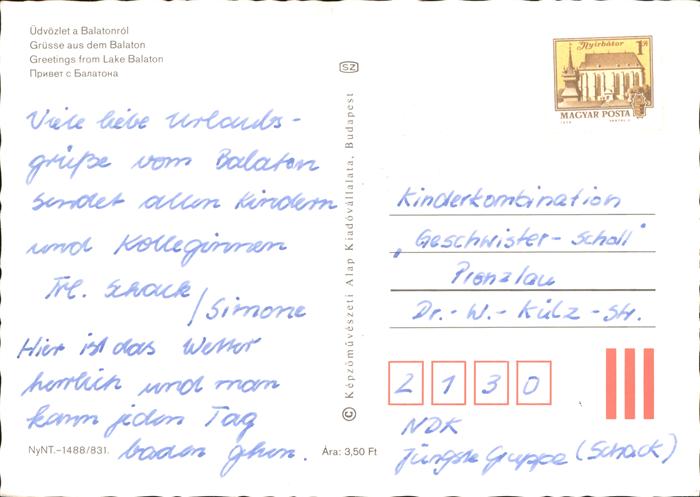 Üdvözlet a Balatonról
Grüsse aus dem Balaton
Greetings from Lake Balaton
Привет с Балатона
Viele liebe Urlaubs-
grüße vom Balaton
sendet allen Kindern
und Kolleginnen
Frl. Schack
/Simone
Hier ist das Wetter
herrlich und man
kann jeden Tag
baden gehen.
NyNT.-1488/831.
Ára: 3,50 Ft
© Képzőművészeti Alap Kiadóvállalata, Budapest
SZ
Nyírbátor
1Ft
MAGYAR POSTA
Kinderkombination
„Geschwister-Scholl"
Prenzlau
Dr.-W.-Külz-Str.
2130
NDK
Jüngste Gruppe (Schack)